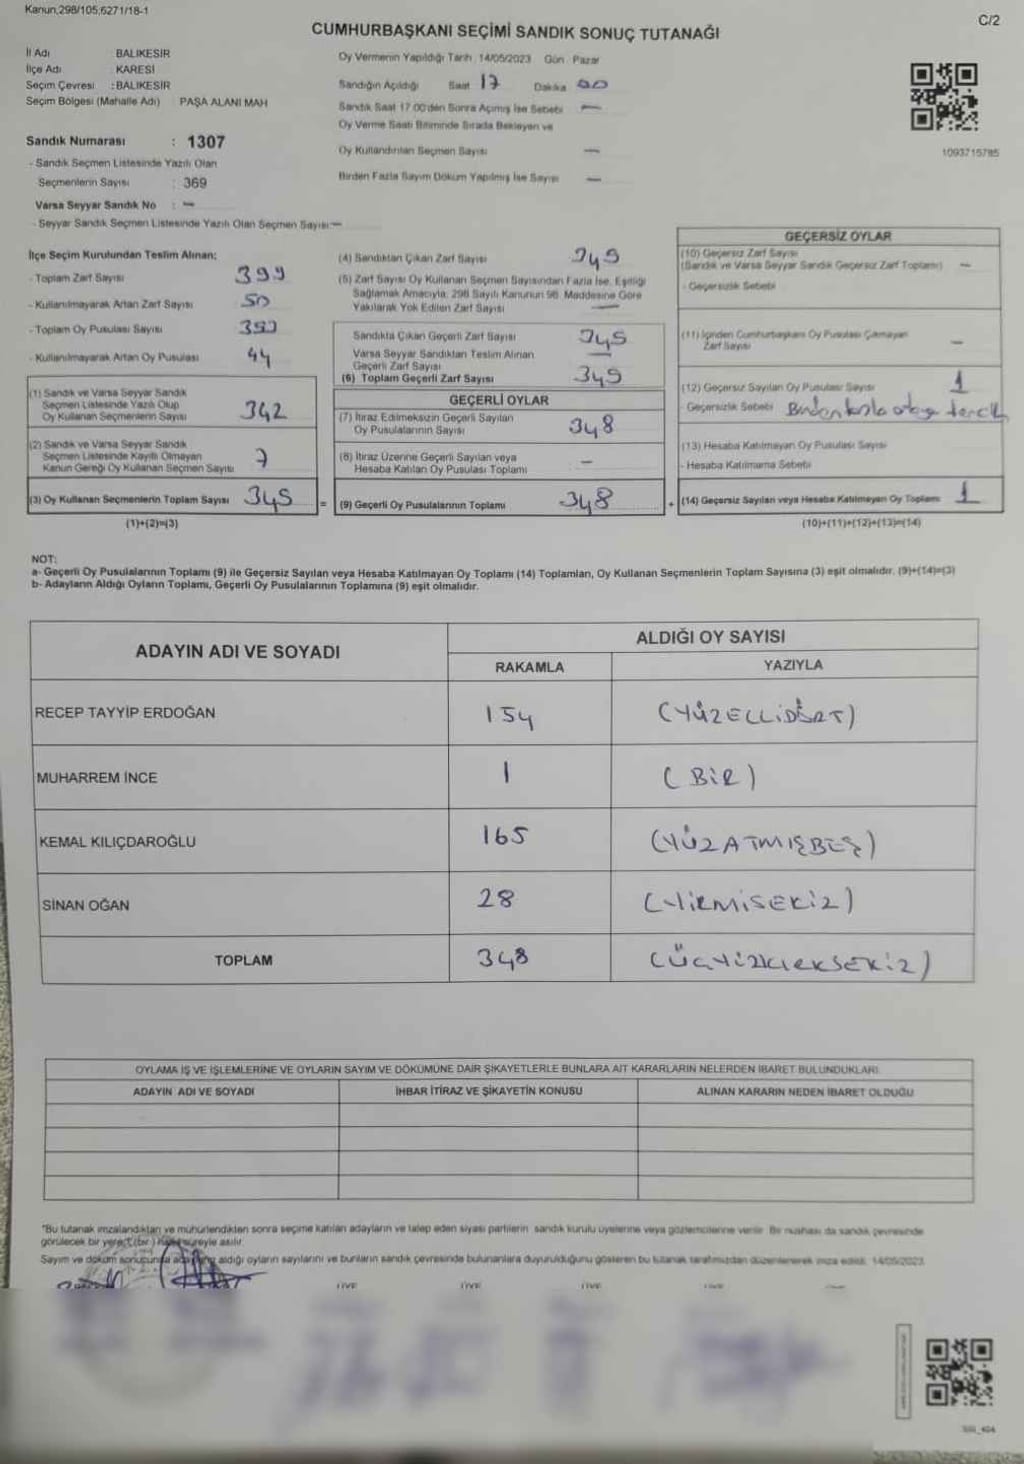 Kanun,298/105,6271/18-1
C/2
CUMHURBAŞKANI SEÇİMİ SANDIK SONUÇ TUTANAĞI
İl Adı : BALIKESİR
İlçe Adı : KARESİ
Seçim Çevresi : BALIKESİR
Seçim Bölgesi (Mahalle Adı) PAŞA ALANI MAH
Sandık Numarası : 1307
- Sandık Seçmen Listesinde Yazılı Olan
Seçmenlerin Sayısı : 369
Varsa Seyyar Sandık No : -
- Seyyar Sandık Seçmen Listesinde Yazılı Olan Seçmen Sayısı -
Oy Vermenin Yapıldığı Tarih : 14/05/2023 Gün : Pazar
Sandığın Açıldığı Saat 17 Dakika 00
Sandık Saat 17.00'den Sonra Açılmış İse Sebebi -
Oy Verme Saati Bitiminde Sırada Bekleyen ve
Oy Kullandırılan Seçmen Sayısı -
Birden Fazla Sayım Döküm Yapılmış İse Sayısı -
1093715785
İlçe Seçim Kurulundan Teslim Alınan;
- Toplam Zarf Sayısı 399
- Kullanılmayarak Artan Zarf Sayısı 50
- Toplam Oy Pusulası Sayısı 393
- Kullanılmayarak Artan Oy Pusulası 44
(1) Sandık ve Varsa Seyyar Sandık
Seçmen Listesinde Yazılı Olup
Oy Kullanan Seçmenlerin Sayısı 342
(2) Sandık ve Varsa Seyyar Sandık
Seçmen Listesinde Kayıtlı Olmayan
Kanun Gereği Oy Kullanan Seçmen Sayısı 7
(3) Oy Kullanan Seçmenlerin Toplam Sayısı 349 =
(1)+(2)=(3)
(4) Sandıktan Çıkan Zarf Sayısı 349
(5) Zarf Sayısı Oy Kullanan Seçmen Sayısından Fazla İse, Eşitliği
Sağlamak Amacıyla, 298 Sayılı Kanunun 98. Maddesine Göre
Yakılarak Yok Edilen Zarf Sayısı -
Sandıkta Çıkan Geçerli Zarf Sayısı 349
Varsa Seyyar Sandıktan Teslim Alınan
Geçerli Zarf Sayısı -
(6) Toplam Geçerli Zarf Sayısı 349
GEÇERLİ OYLAR
(7) İtiraz Edilmeksizin Geçerli Sayılan
Oy Pusulalarının Sayısı 348
(8) İtiraz Üzerine Geçerli Sayılan veya
Hesaba Katılan Oy Pusulası Toplamı -
(9) Geçerli Oy Pusulalarının Toplamı 348 +
GEÇERSİZ OYLAR
(10) Geçersiz Zarf Sayısı
(Sandık ve Varsa Seyyar Sandık Geçersiz Zarf Toplamı) -
- Geçersizlik Sebebi
(11) İçinden Cumhurbaşkanı Oy Pusulası Çıkmayan
Zarf Sayısı -
(12) Geçersiz Sayılan Oy Pusulası Sayısı 1
- Geçersizlik Sebebi Birden fazla adaya tercih
(13) Hesaba Katılmayan Oy Pusulası Sayısı
- Hesaba Katılmama Sebebi
(14) Geçersiz Sayılan veya Hesaba Katılmayan Oy Toplamı 1
(10)+(11)+(12)+(13)=(14)
NOT:
a- Geçerli Oy Pusulalarının Toplamı (9) ile Geçersiz Sayılan veya Hesaba Katılmayan Oy Toplamı (14) Toplamları, Oy Kullanan Seçmenlerin Toplam Sayısına (3) eşit olmalıdır. (9)+(14)=(3)
b- Adayların Aldığı Oyların Toplamı, Geçerli Oy Pusulalarının Toplamına (9) eşit olmalıdır.
ADAYIN ADI VE SOYADI
ALDIĞI OY SAYISI
RAKAMLA YAZIYLA
RECEP TAYYİP ERDOĞAN 154 (YÜZELLİDÖRT)
MUHARREM İNCE 1 (BİR)
KEMAL KILIÇDAROĞLU 165 (YÜZATMIŞBEŞ)
SİNAN OĞAN 28 (YİRMİSEKİZ)
TOPLAM 348 (ÜÇYÜZKIRKSEKİZ)
OYLAMA İŞ VE İŞLEMLERİNE VE OYLARIN SAYIM VE DÖKÜMÜNE DAİR ŞİKAYETLERLE BUNLARA AİT KARARLARIN NELERDEN İBARET BULUNDUKLARI
ADAYIN ADI VE SOYADI İHBAR İTİRAZ VE ŞİKAYETİN KONUSU ALINAN KARARIN NEDEN İBARET OLDUĞU
*Bu tutanak imzalandıktan ve mühürlendikten sonra seçime katılan adayların ve talep eden siyasi partilerin sandık kurulu üyelerine veya gözlemcilerine verilir. Bir nüshası da sandık çevresinde
görülecek bir yere (bir) hafta süreyle asılır.
Sayım ve döküm sonucunda adayların aldığı oyların sayılarını ve bunların sandık çevresinde bulunanlara duyurulduğunu gösteren bu tutanak tarafımızdan düzenlenerek imza edildi. 14/05/2023
ÜYE ÜYE ÜYE ÜYE